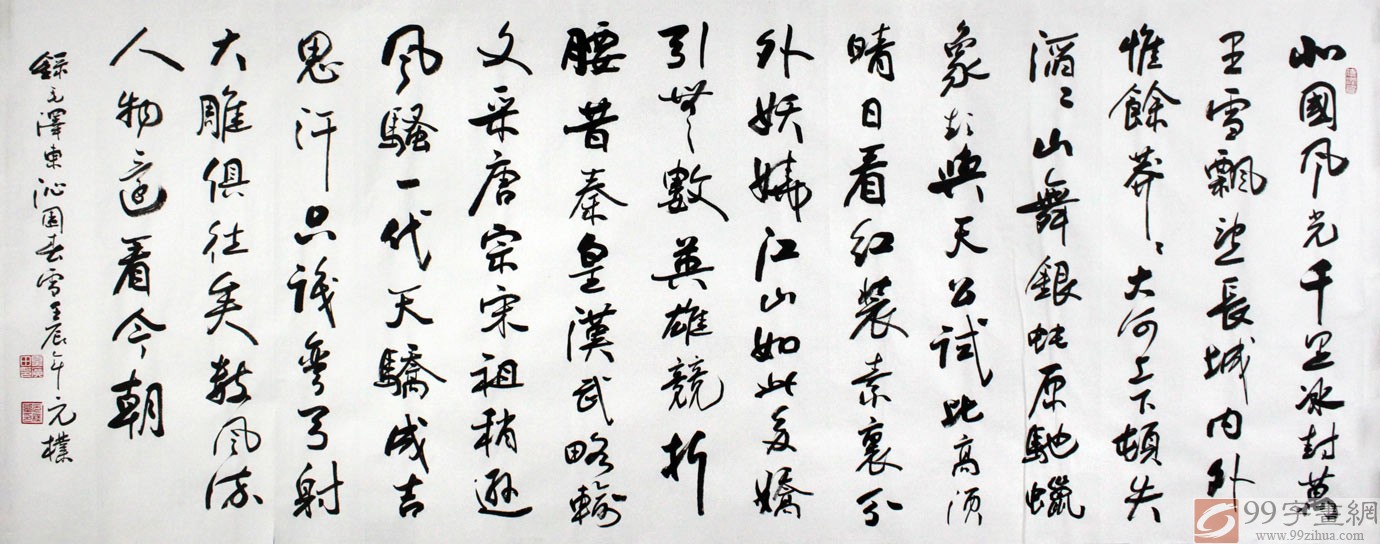 北國风光千里冰封萬
里雪飄望長城内外
惟餘莽〻大河上下頓失
滔〻山舞銀蛇原馳蠟
象欲與天公試比高須
晴日看紅裝素裹分
外妖嬈江山如此多嬌
引無數英雄競折
腰昔秦皇漢武略輸
文采唐宗宋祖稍遜
风騷一代天驕成吉
思汗只識彎弓射
大雕俱往矣数风流
人物還看今朝
錄毛澤東沁園春雪壬辰年元樸
99字畫網
www.99zihua.com